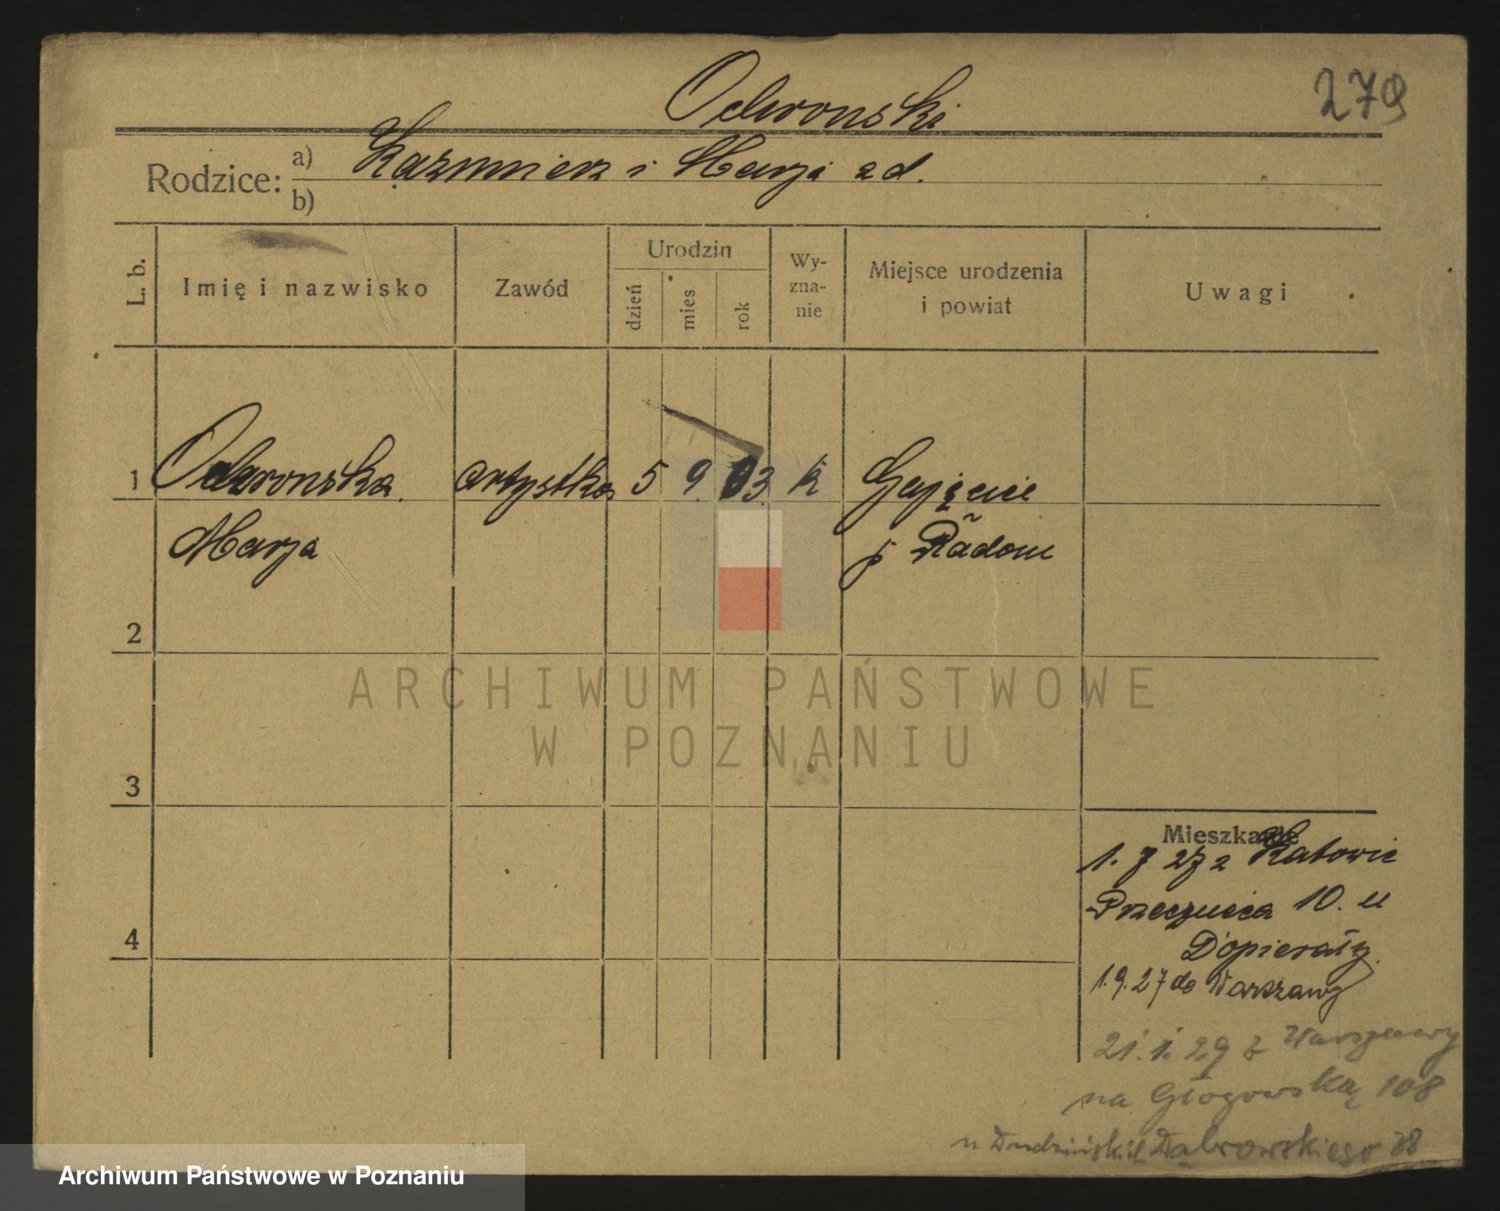 279
Odrronski
Rodzice: a) Kazimierz i Marja zd.
b)
L. b.
Imię i nazwisko
Zawód
Urodzin
dzień
mies
rok
Wy-
zna-
nie
Miejsce urodzenia
i powiat
Uwagi
1 Odrronska artystka 5 9. 03. k
Marja p Radom
2
ARCHIWUM PAŃSTWOWE
W POZNANIU
3
Mieszkanie
1. 7 27 z Katowic
10. u
Dopierały
4
1.9.27 do Warszawy
21.1.29 z Warszawy
na Głogowską 108
u Dąbrowskiego 38
Archiwum Państwowe w Poznaniu